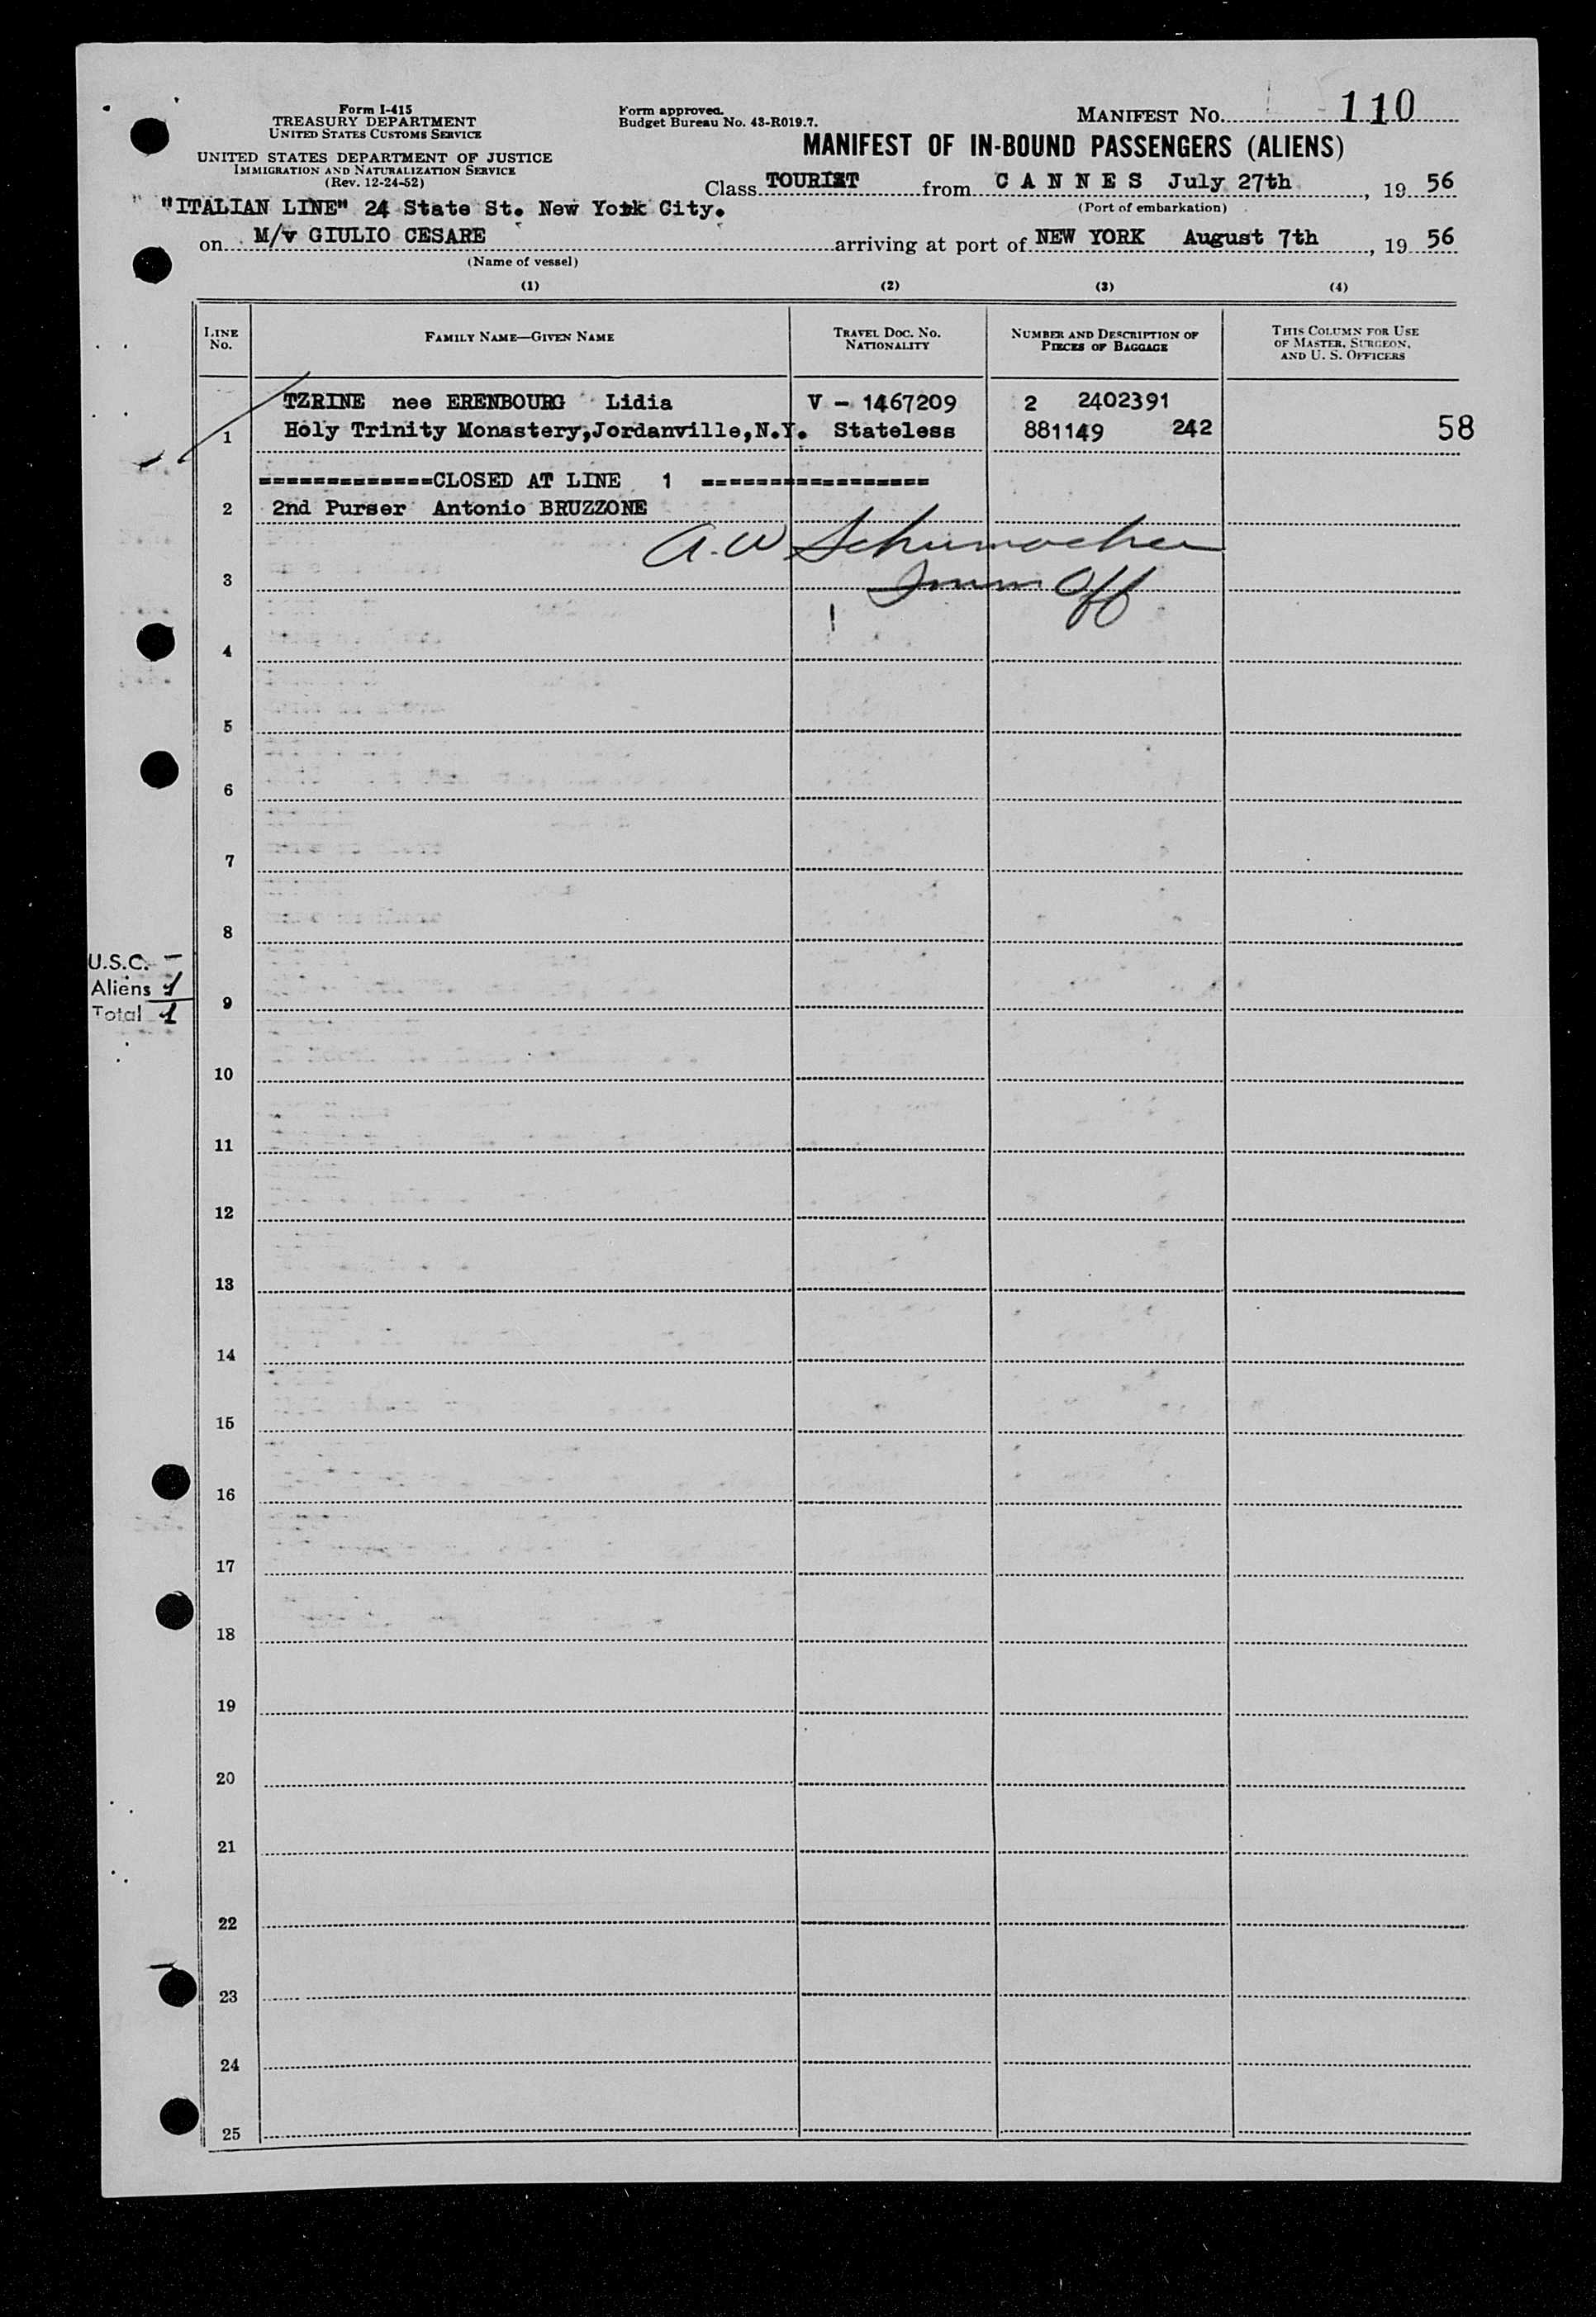 Form I-415
TREASURY DEPARTMENT
UNITED STATES CUSTOMS SERVICE
UNITED STATES DEPARTMENT OF JUSTICE
IMMIGRATION AND NATURALIZATION SERVICE
(Rev. 12-24-52)
Form approved.
Budget Bureau No. 43-R019.7.
MANIFEST No. 110
MANIFEST OF IN-BOUND PASSENGERS (ALIENS)
Class TOURIST from C A N N E S July 27th, 19 56
(Port of embarkation)
"ITALIAN LINE" 24 State St. New York City.
on M/v GIULIO CESARE arriving at port of NEW YORK August 7th, 19 56
(Name of vessel)
(1) (2) (3) (4)
LINE No. FAMILY NAME—GIVEN NAME TRAVEL DOC. No. NATIONALITY NUMBER AND DESCRIPTION OF PIECES OF BAGGAGE THIS COLUMN FOR USE OF MASTER, SURGEON, AND U. S. OFFICERS
TZRINE nee ERENBOURG Lidia V - 1467209 2 2402391
1 Holy Trinity Monastery,Jordanville,N.Y. Stateless 881149 242 58
=============CLOSED AT LINE 1 =================
2 2nd Purser Antonio BRUZZONE
A. W Schumacher
3 Imm Off
4
5
6
7
8
U.S.C. -
Aliens 1
9
Total 1
10
11
12
13
14
15
16
17
18
19
20
21
22
23
24
25